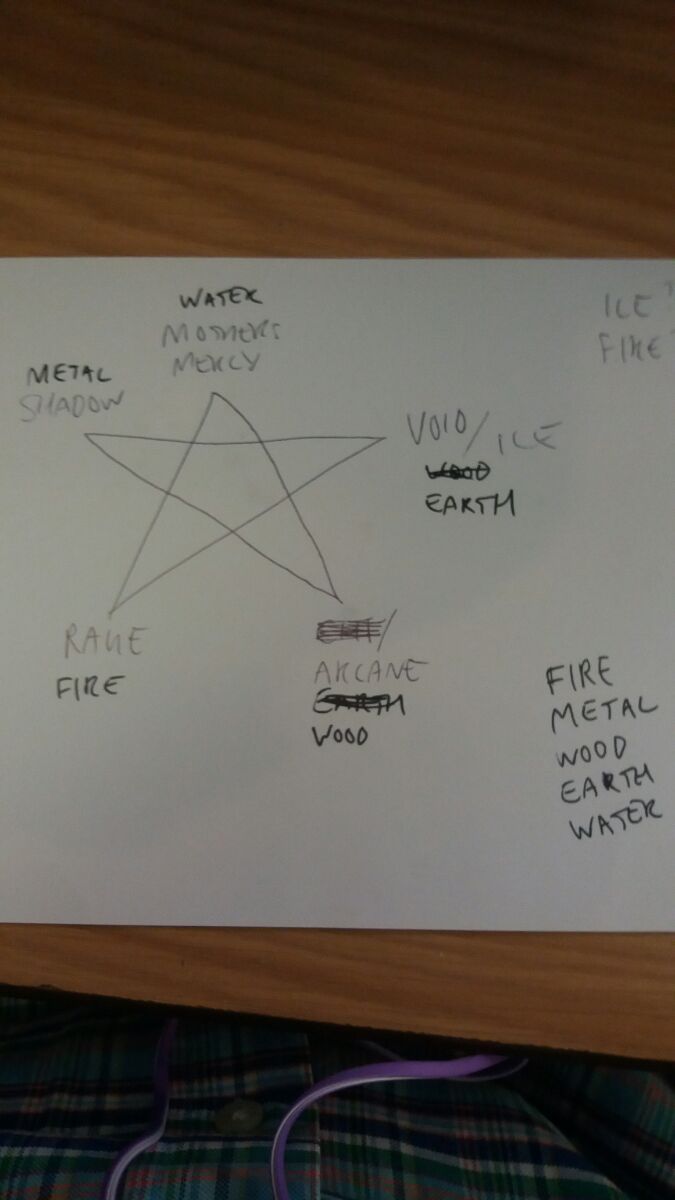 WATER
MOTHERS
MERCY
METAL
SHADOW
ICE ?
FIRE ?
VOID/ICE
WOOD
EARTH
RAGE
FIRE
/
ARCANE
EARTH
WOOD
FIRE
METAL
WOOD
EARTH
WATER